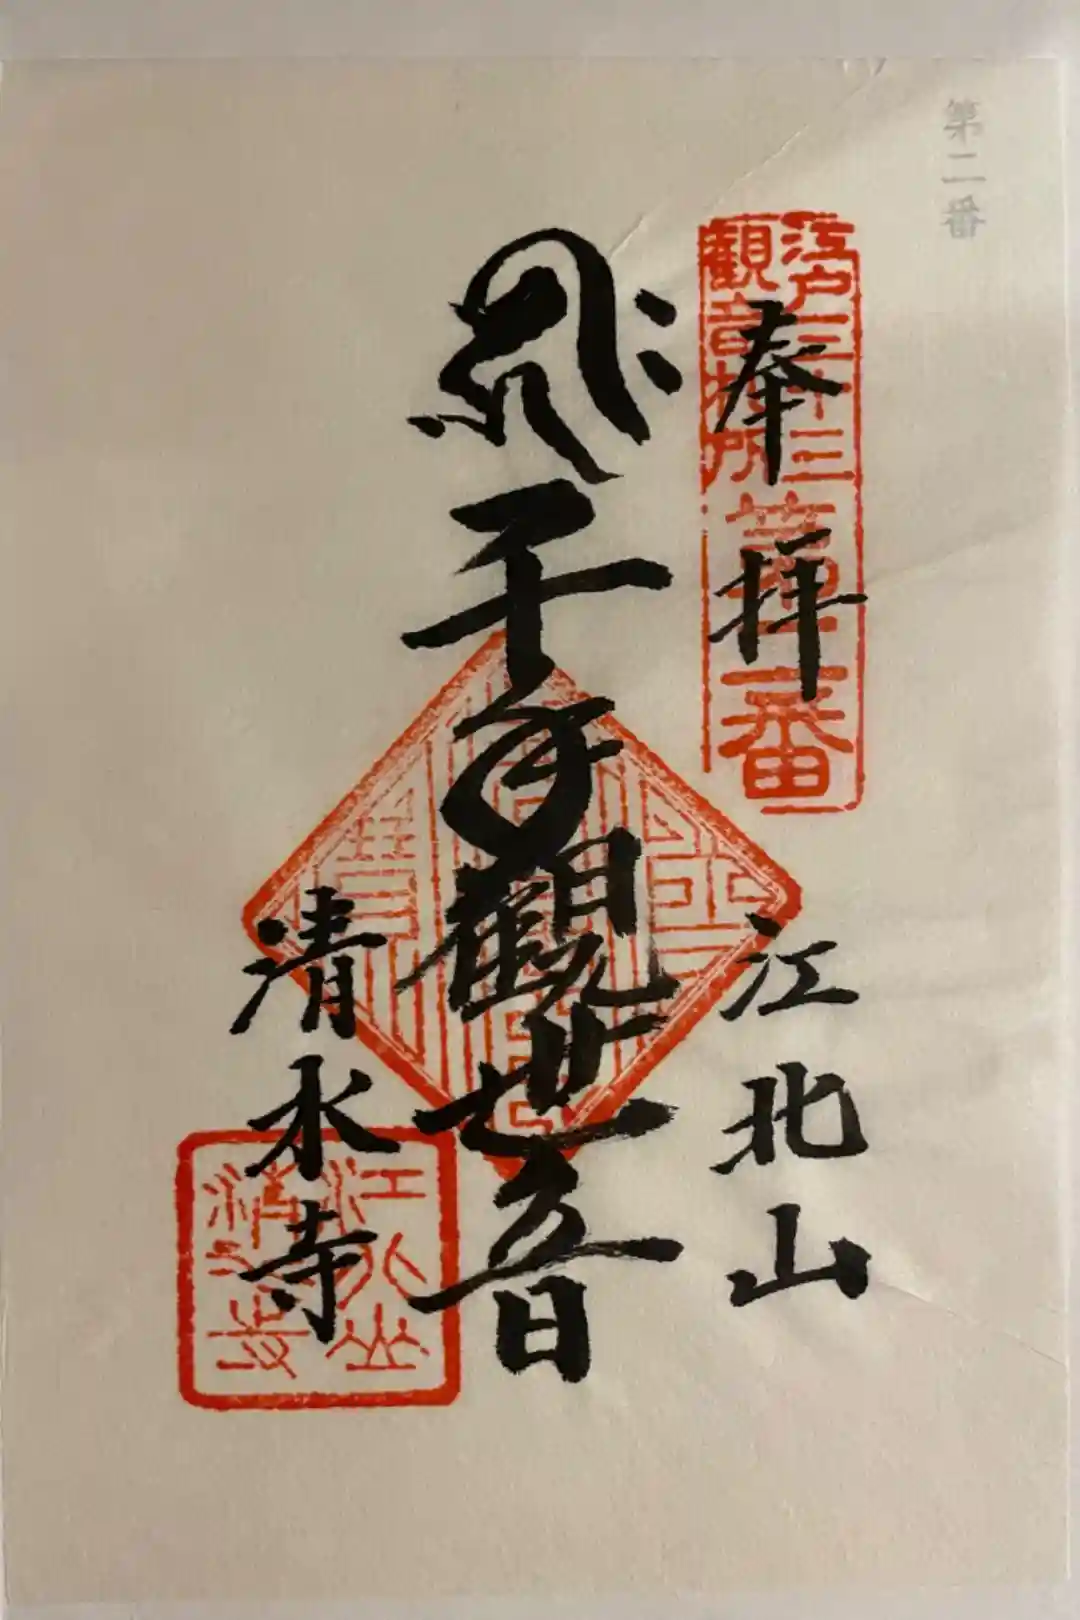 第二番
江戸三十三
観音札所
第二番
奉拝
江北山
千手観世音
清水寺